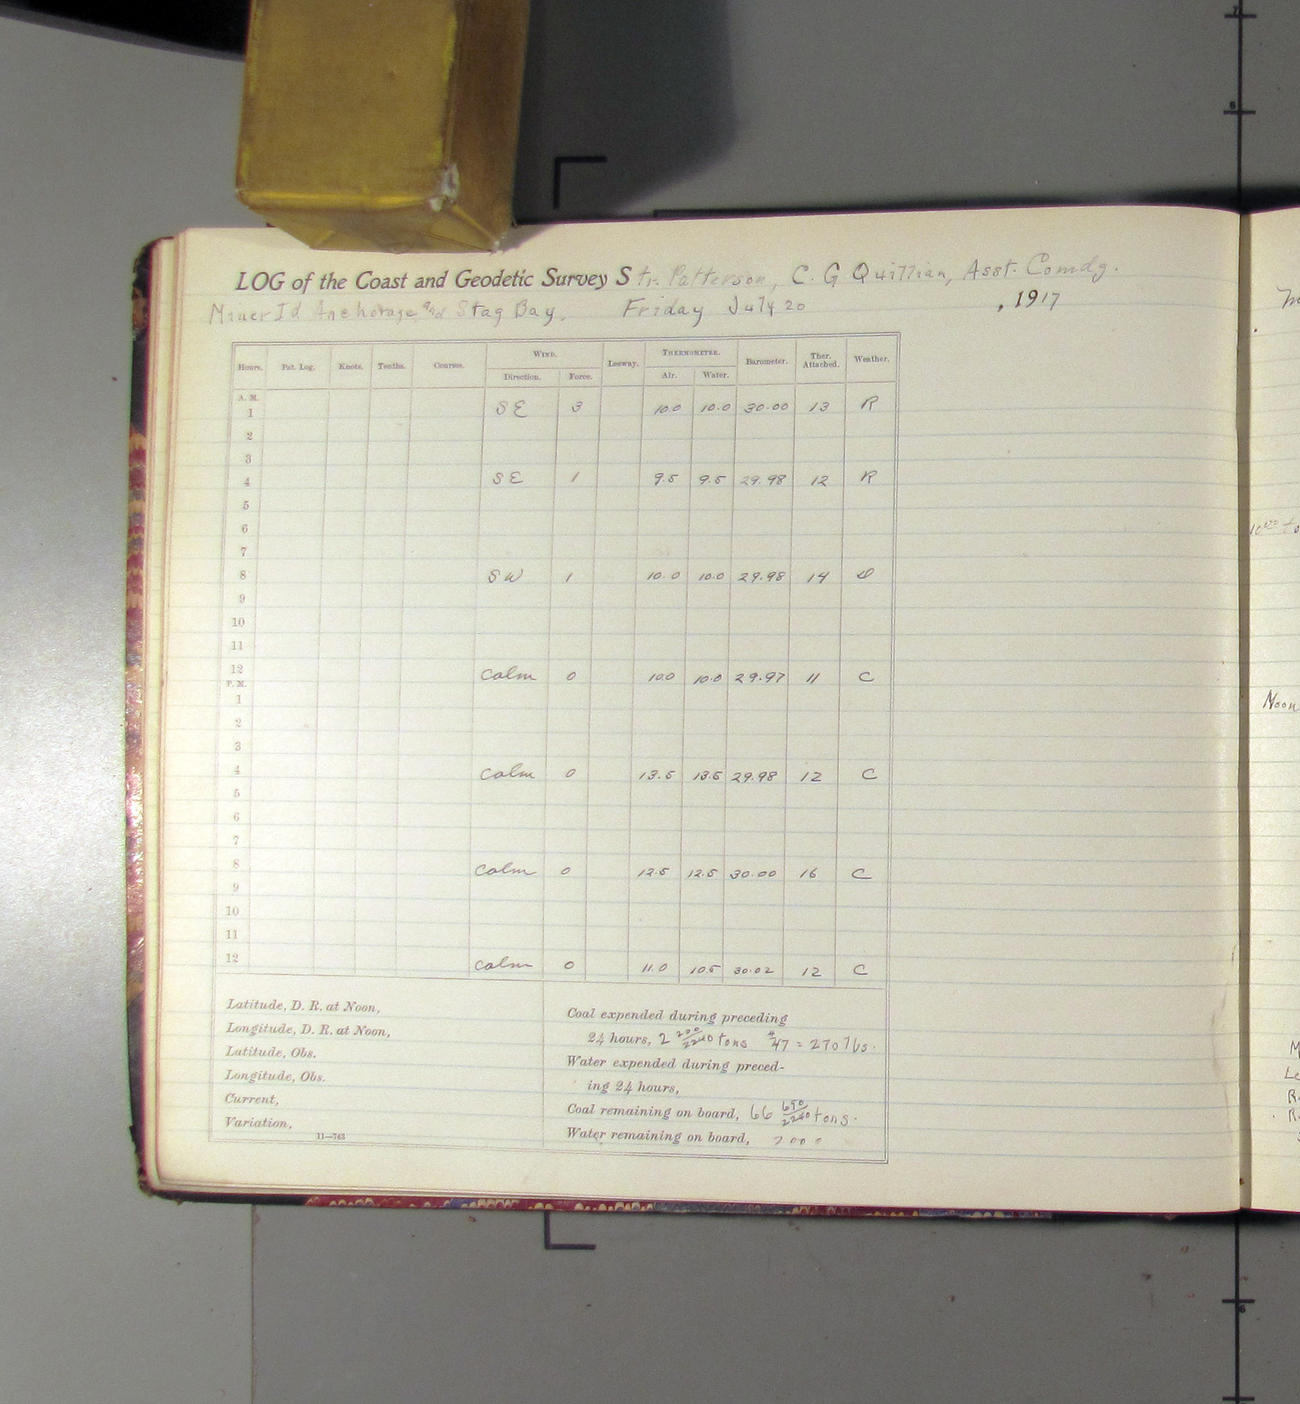 LOG of the Coast and Geodetic Survey Str. Patterson, C. G Quillian, Asst. Comdg.
Miner Id Anchorage and Stag Bay. Friday July 20, 1917
Hours. Pat. Log. Knots. Tenths. Course. WIND. Direction. Force. Leeway. THERMOMETER. Air. Water. Barometer. Ther. Attached. Weather.
A. M.
1 SE 3 10.0 10.0 30.00 13 R
2
3
4 SE 1 9.5 9.5 29.98 12 R
5
6
7
8 SW 1 10.0 10.0 29.98 14 D
9
10
11
12 Calm 0 10.0 10.0 29.97 11 C
P. M.
1
2
3
4 Calm 0 13.5 13.5 29.98 12 C
5
6
7
8 Calm 0 12.5 12.5 30.00 16 C
9
10
11
12 Calm 0 11.0 10.5 30.02 12 C
Latitude, D. R. at Noon,
Longitude, D. R. at Noon,
Latitude, Obs.
Longitude, Obs.
Current,
Variation,
11—763
Coal expended during preceding
24 hours, 2 200/2240 tons #47 = 270 lbs.
Water expended during preced-
ing 24 hours,
Coal remaining on board, 66 690/2240 tons.
Water remaining on board, 2000
Noon